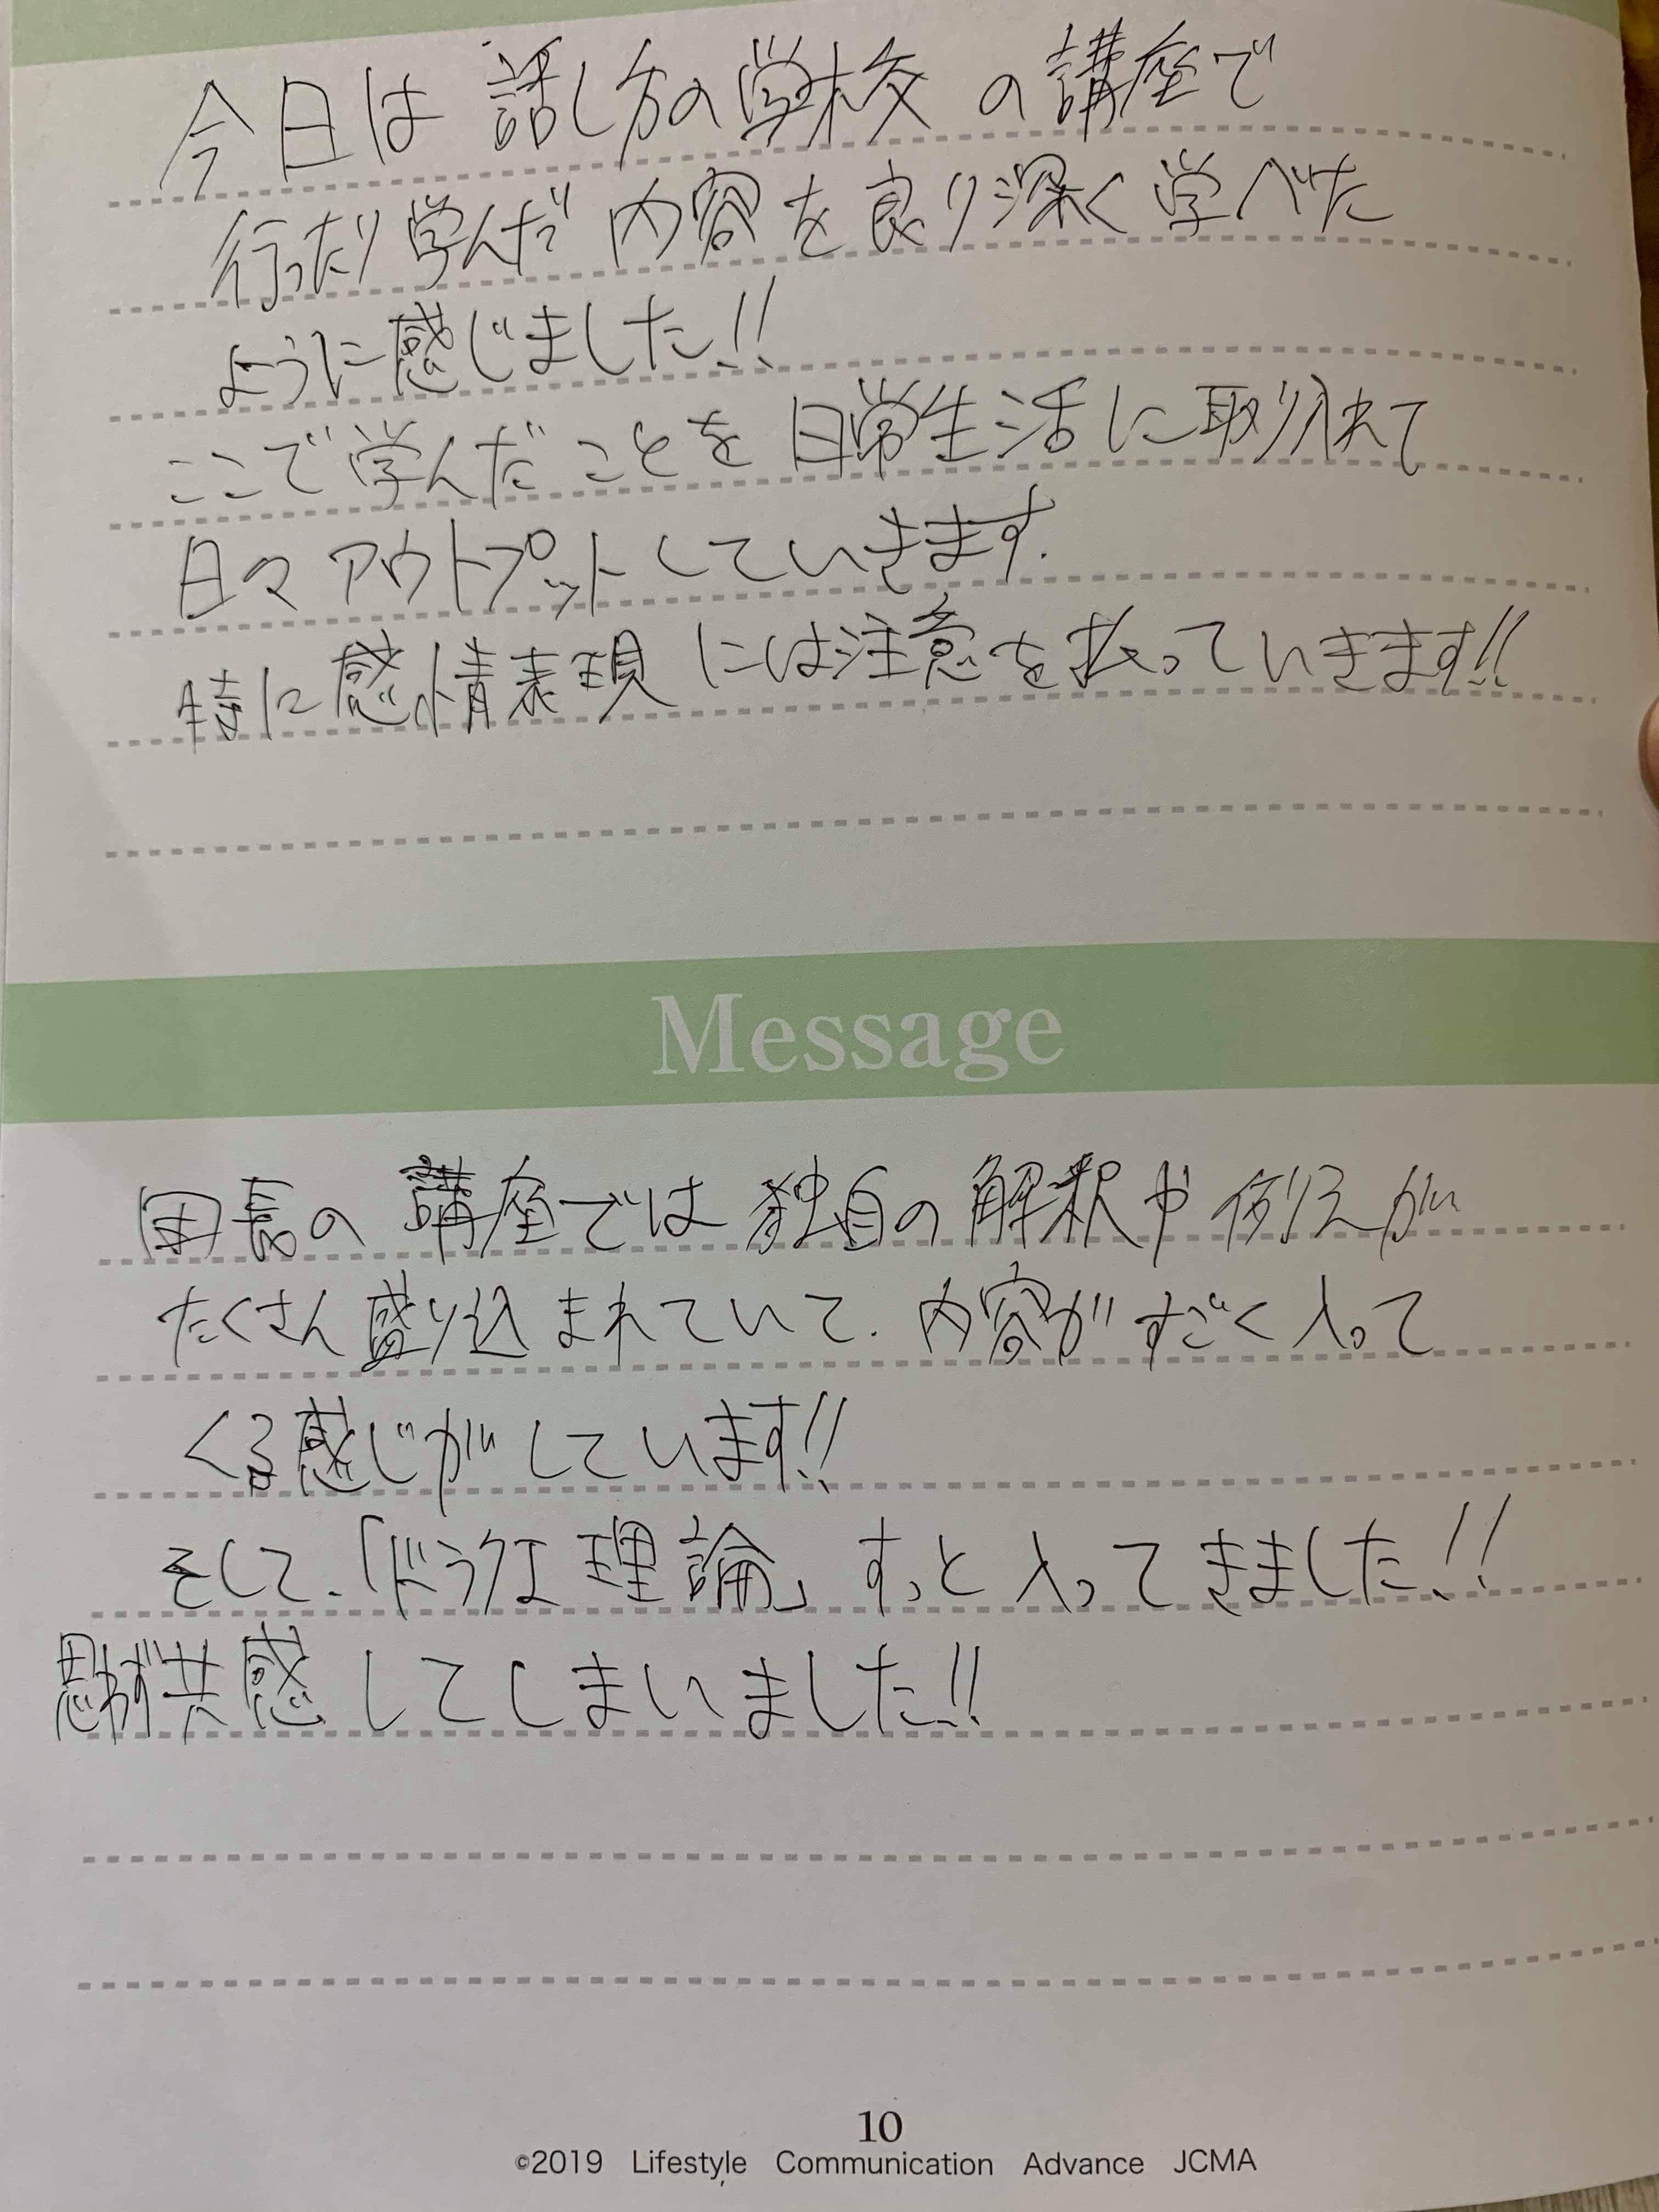 今日は 話し方の学校 の講座で
行ったり学んだ内容を良り深く学べた
ように感じました!!
ここで学んだことを日常生活に取り入れて
日々アウトプットしていきます.
特に感情表現には注意を払っていきます!!
Message
団長の講座では独自の解釈や例えが
たくさん盛り込まれていて.内容がすごく入って
くる感じがしています!!
そして.「ドラクエ理論」すっと入ってきました!!
思わず共感してしまいました!!
10
©2019 Lifestyle Communication Advance JCMA